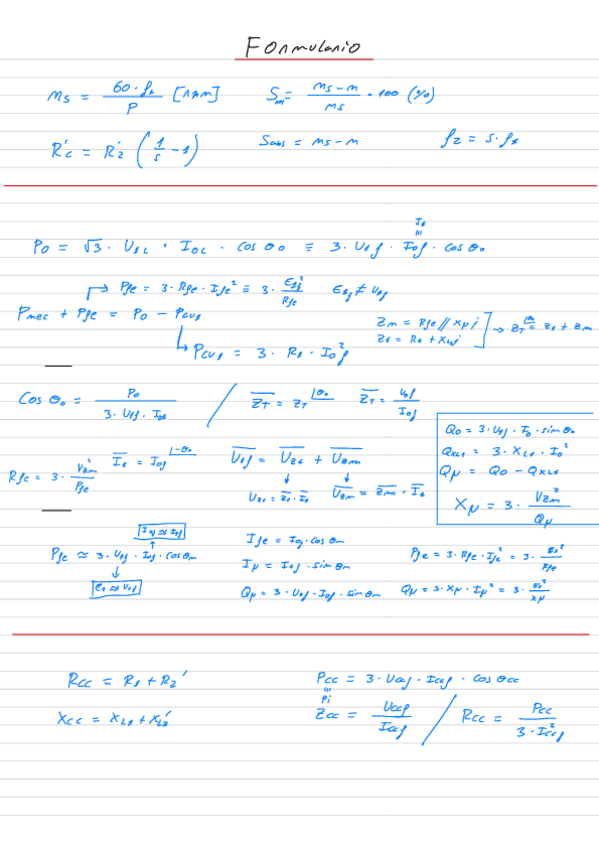 Formulario
ms = 60·f₁ / P [rpm]   Sm = (ms - m) / ms · 100 (%)
R'c = R'2 (1/s - 1)   Sabs = ms - m   f2 = s·f₁
I₁
Po = √3 · U₁L · I0L · cos θ0 ≡ 3 · U₁f · I0f · cos θ0
Pfe = 3·Rfe·Ife² ≡ 3· E₁f² / Rfe   E₁f ≠ U₁f
Pmec + Pfe = Po - Pcu₁
Zm = Rfe // Xμj
Z₁ = R₁ + XL₁j → ZT = Z₁ + Zm
Pcu₁ = 3 · R₁ · I0f²
Cos θ0 = Po / (3·U₁f·I0f) / ZT = ZT |θ0   ZT = U0f / I0f
Q0 = 3·U₁f·I0·sin θ0
QXL₁ = 3·XL₁·I0²
Qμ = Q0 - QXL₁
Xμ = 3 · Vzm² / Qμ
Rfe = 3· Vzm² / Pfe   I₁ = I0f |-θ0   U₁f = Uz₁ + Uzm
Uz₁ = Z₁·I₁   Uzm = Zm·I₁
I0f ≈ I0f
Pfe ≈ 3·U₁f·I0f·cos θm
e₀ ≈ U0f
Ife = I0f·cos θm
Iμ = I0f·sin θm
Qμ = 3·U₁f·I0f·sin θm
Pfe = 3·Rfe·Ife² = 3· E₁² / Rfe
Qμ = 3·Xμ·Iμ² = 3· E₁² / Xμ
Rcc = R₁ + R2'
Xcc = XL₁ + XL2'
Pcc = 3·Uccf·Iccf·cos θcc
Pi
Zcc = Uccf / Iccf / Rcc = Pcc / (3·Iccf²)